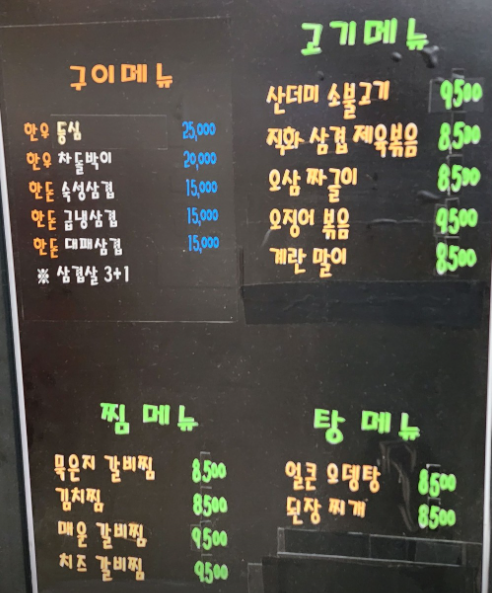 구이메뉴
한우 등심 25,000
한우 차돌박이 20,000
한돈 숙성삼겹 15,000
한돈 급냉삼겹 15,000
한돈 대패삼겹 15,000
※ 삼겹살 3+1
고기메뉴
산더미 소불고기 9500
직화 삼겹 제육볶음 8,500
오삼 짜글이 8,500
오징어 볶음 9500
계란 말이 8500
찜 메뉴
묵은지 갈비찜 8500
김치찜 8500
매운 갈비찜 9500
치즈 갈비찜 9,500
탕 메뉴
얼큰 오뎅탕 8500
된장 찌개 8500